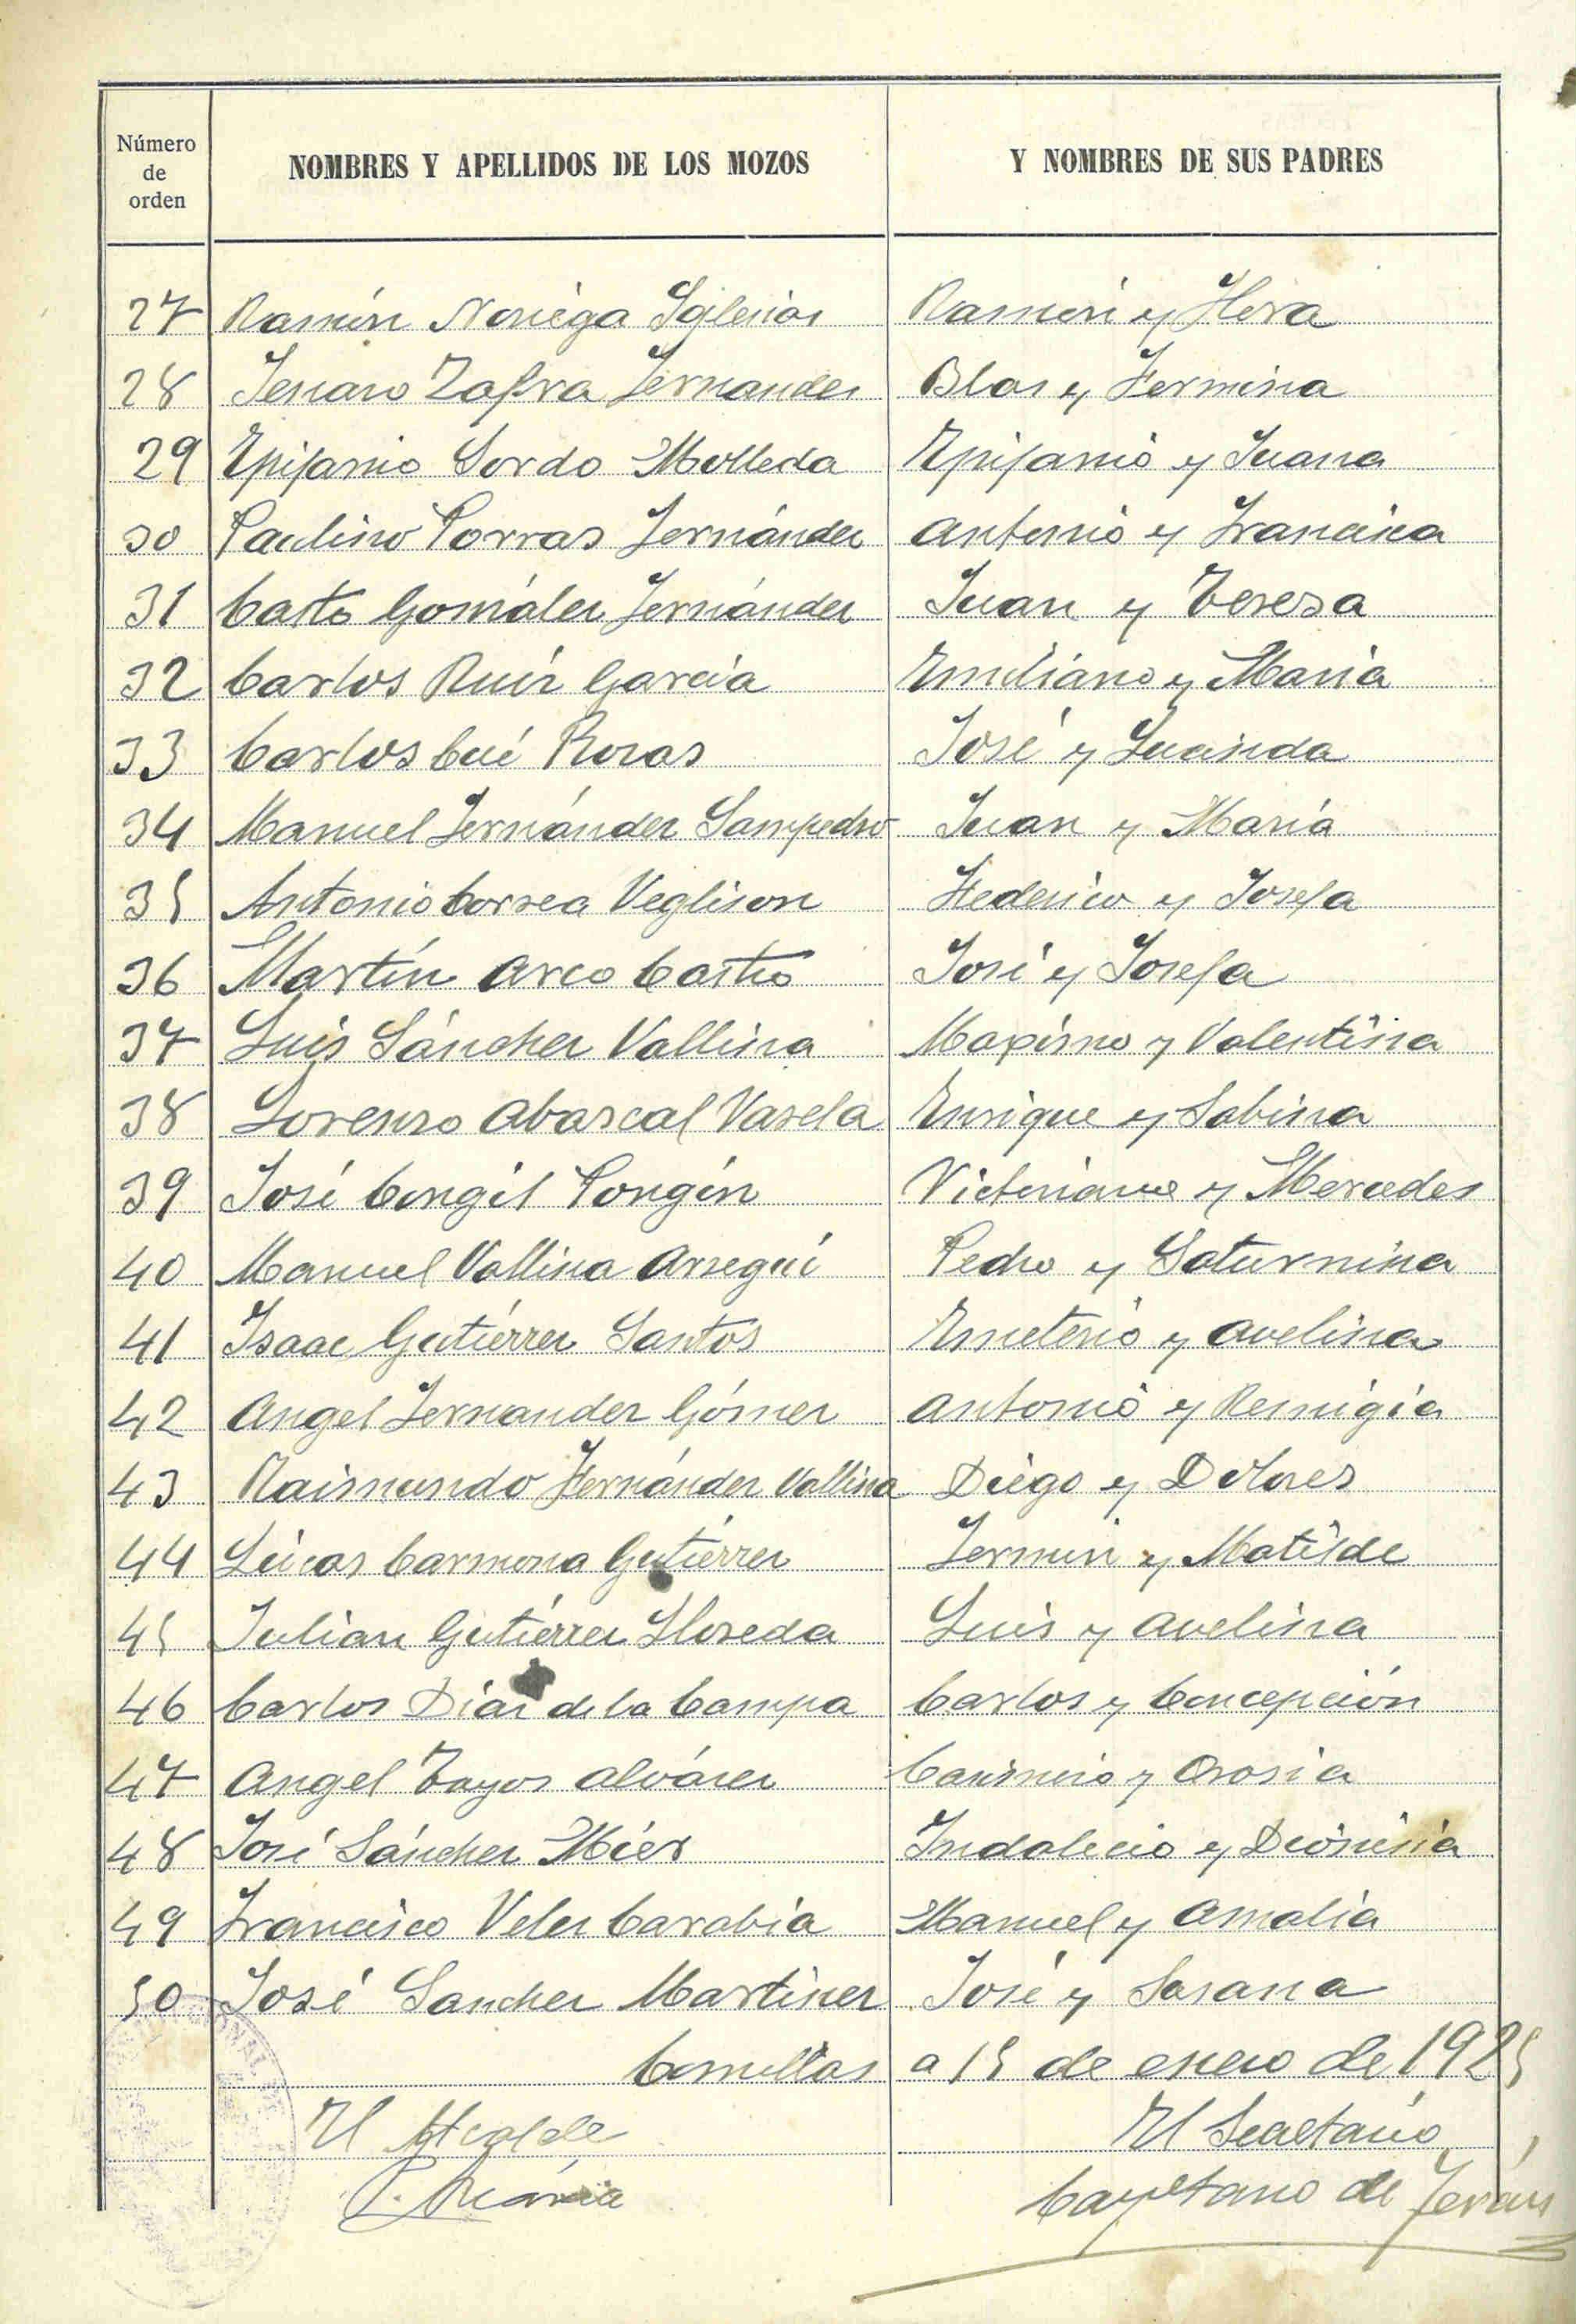 Número de orden
NOMBRES Y APELLIDOS DE LOS MOZOS
Y NOMBRES DE SUS PADRES
27 Ramón Noriega Yglesias Ramón y Flora
28 Jenaro Zafra Fernandez Blas y Fermina
29 Epifanio Sordo Molleda Epifanio y Juana
30 Paulino Porras Fernández Antonio y Francisca
31 Casto González Fernández Juan y Teresa
32 Carlos Ruiz García Emiliano y María
33 Carlos Cué Rozas José y Lucinda
34 Manuel Fernández Sampedro Juan y María
35 Antonio Correa Veglison Federico y Josefa
36 Martín Arco Castro José y Josefa
37 Luis Sánchez Vallina Maximo y Valentina
38 Lorenzo Abascal Varela Enrique y Sabina
39 José Congil Pongín Victoriano y Mercedes
40 Manuel Vallina Arreguí Pedro y Saturnina
41 Isaac Gutiérrez Santos Emeterio y Avelina
42 Angel Fernandez Gómez Antonio y Remigia
43 Raimundo Fernández Vallina Diego y Dolores
44 Lucas Carmona Gutiérrez Fermin y Matilde
45 Julian Gutiérrez Lloreda Luis y Avelina
46 Carlos Díaz de la Campa Carlos y Concepción
47 Angel Tayos Alvárez Casimiro y Orosia
48 José Sánchez Mier Indalecio y Dionisia
49 Francisco Velez Carabia Manuel y Amalia
50 José Sanchez Martinez José y Sasana
Comillas a 15 de enero de 1925
El Alcalde El Secretario
Cayetano de Terán